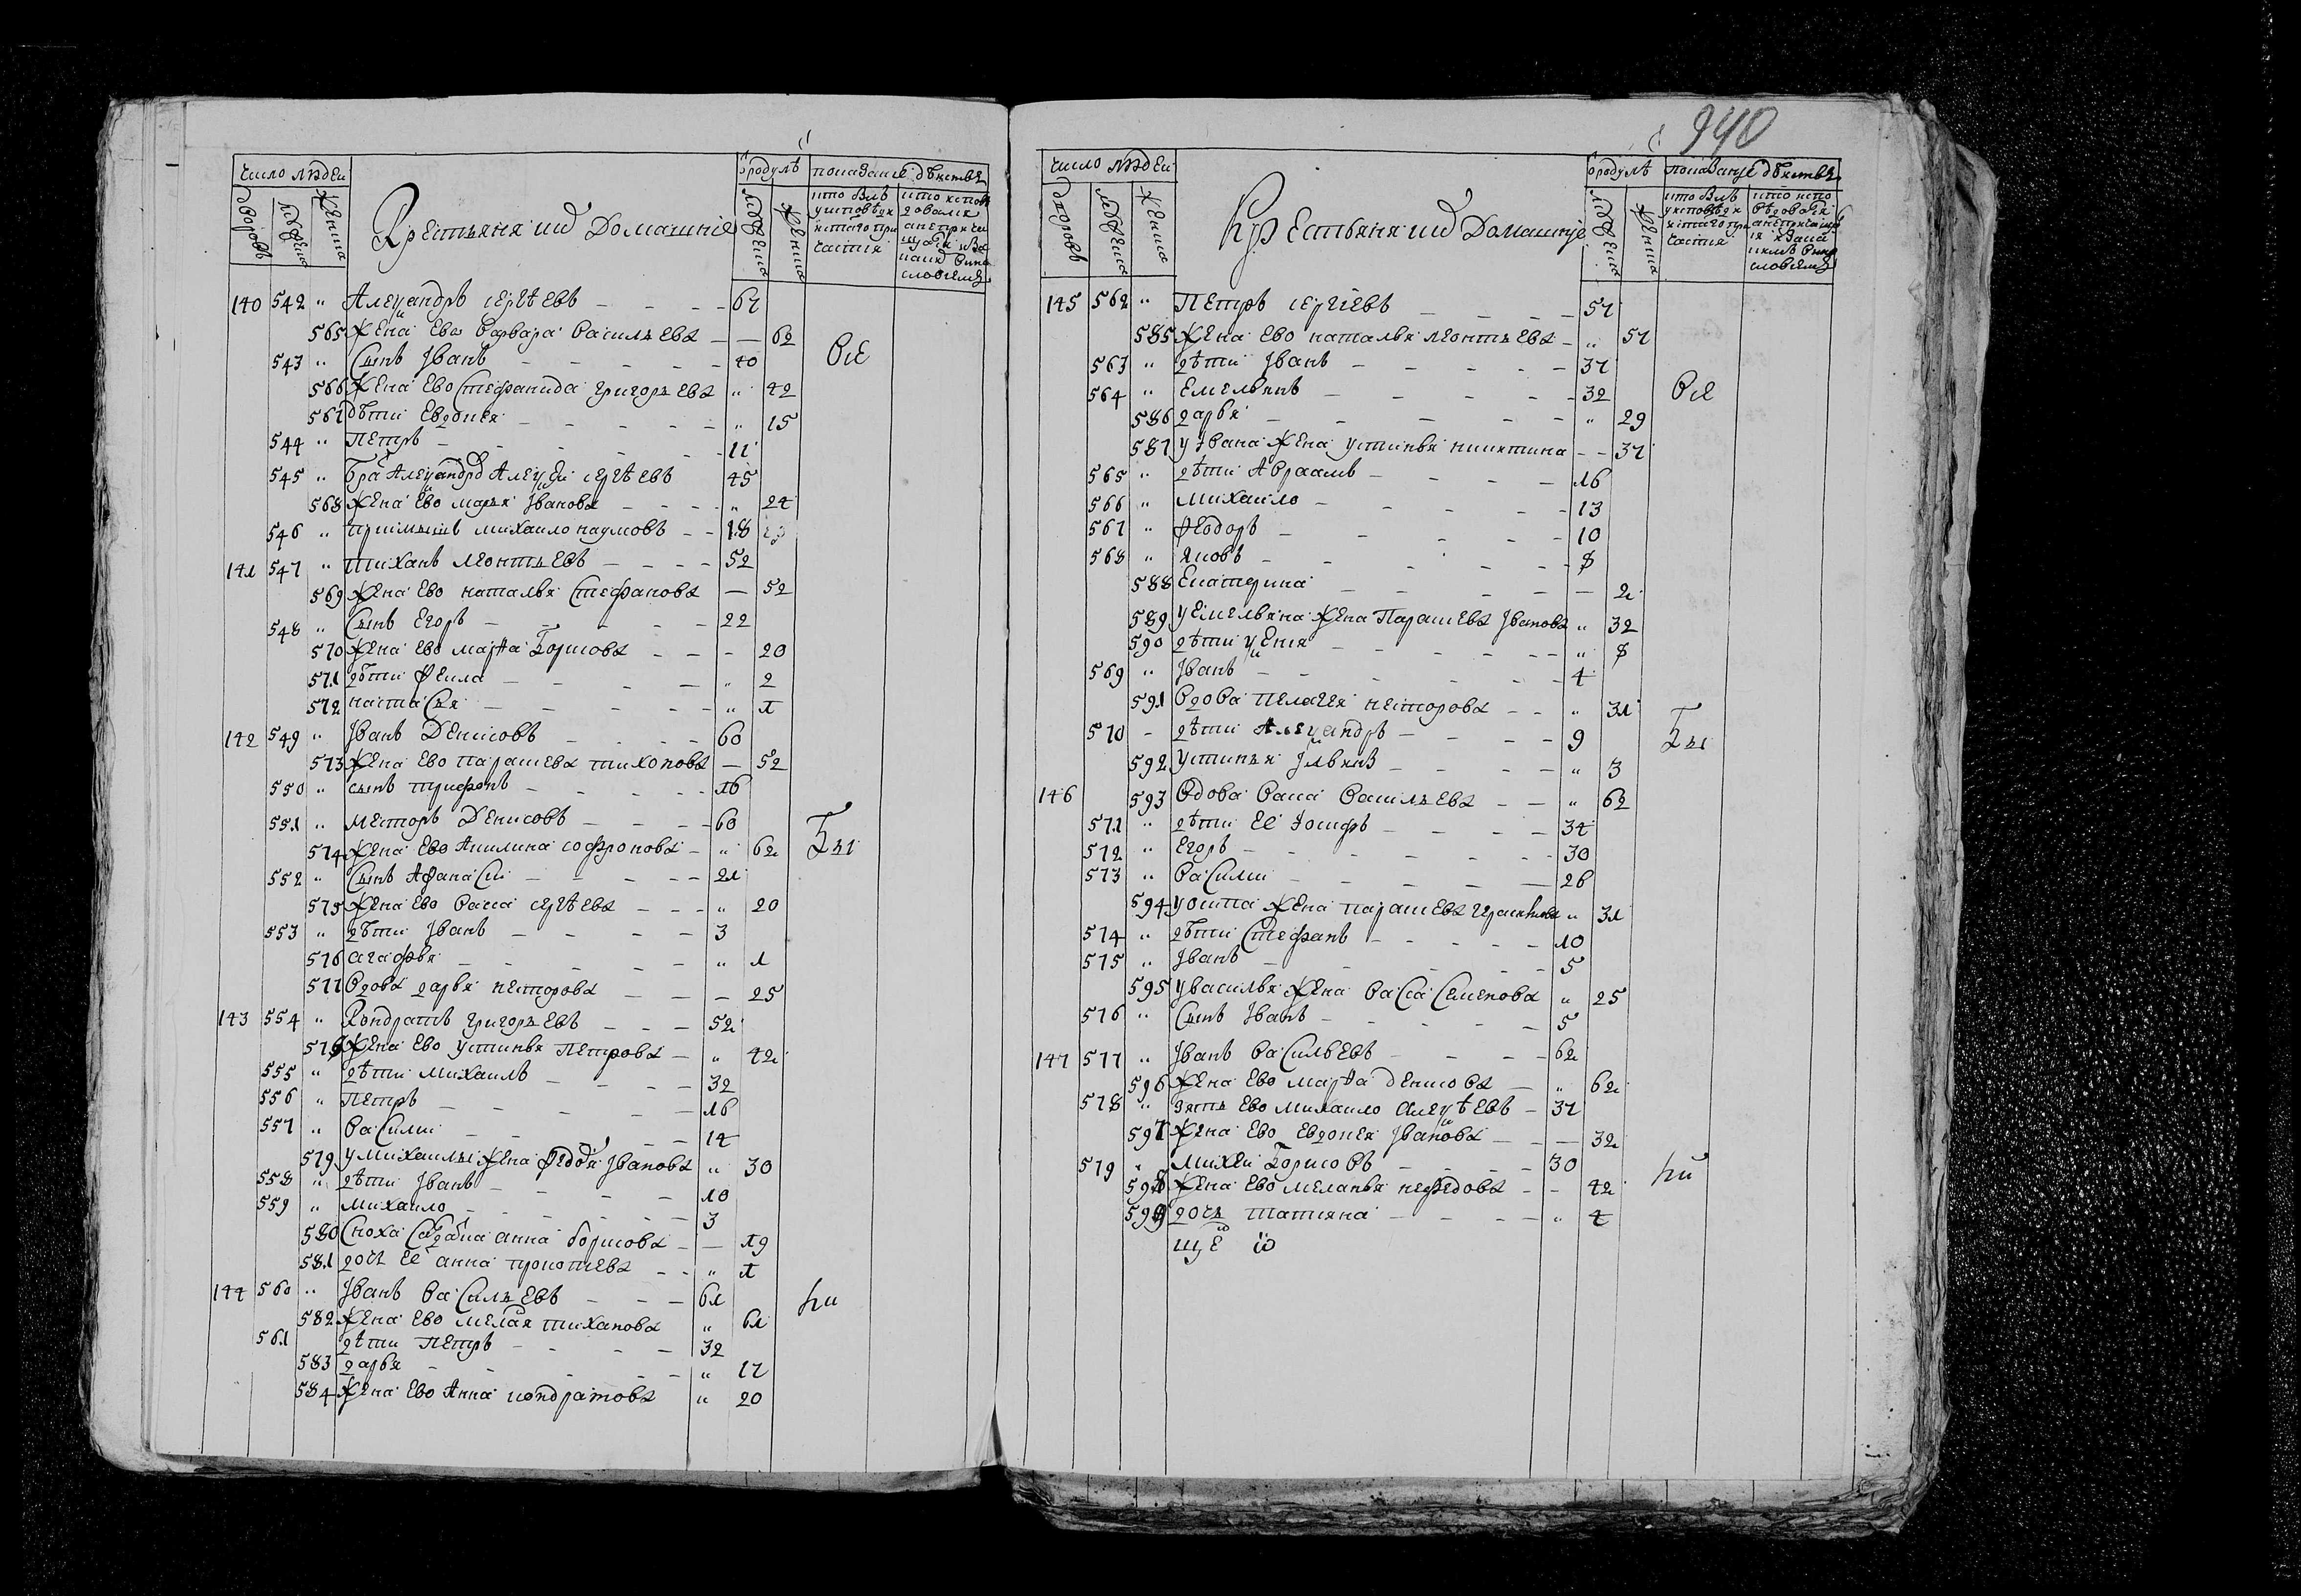 число людеи
дворовъ
мужеска
женска
Крестьяня ихъ Домашніе
показаніе дѣиства
140 542 " Алеѯандръ сергѣевъ 67
565 Жена Ево Варвара Василъева — 62
543 " Сынъ Иванъ 40 Все
566 Жена Ево Стефанида григоръева " 42
567 дѣти Евдокия " 15
544 " Петръ 11
545 " Братъ Алеѯандръ Алеѯѣи сергѣевъ 45
568 Жена Ево маръя Иванова " 24
546 " приимышъ михаило наумовъ 18
141 547 " тиханъ леонтъевъ 52
569 Жена Ево наталья Стефанова — 52
548 " Сынъ Егоръ 22
570 Жена Ево марѳа Борисова - 20
571 дѣти Ѳекла " 2
572 настасъя " 1
142 549 " Иванъ Денисовъ 60
573 Жена Ево парасгева тихонова — 52
550 " сынъ трифонъ 16
551 " несторъ Денисовъ 60
574 Жена Ево Акилина софронова " 62 Бы
552 " Сынъ Аѳанасии 21
575 Жена Ево Васса сергѣева " 20
553 " дѣти Иванъ 3
576 агафья " 1
577 Вдова дарья несторова - 25
143 554 " Кондратъ григоръевъ 52
578 Жена Ево устинья Петрова " 42
555 " дѣти михаилъ 32
556 " Петръ 16
557 " Василии 14
579 у михаилы Жена Ѳедося Иванова " 30
558 " дѣти Иванъ 10
559 " михаило 3
580 Сноха Салдатка анна борисова — 19
581 дочь Ее анна прокопиева " 1
144 560 " Иванъ Василъевъ 61 ли
582 Жена Ево меланя тиханова " 61
561 дѣти Петръ 32
583 дарья " 17
584 Жена Ево Анна кондратова " 20
940
число людеи
дворовъ
мужеска
женска
Крестьяня ихъ Домашніе
показаніе дѣиства
145 562 " Петръ сергіевъ 57
585 Жена Ево наталья леонтъева " 57
563 " дѣти Иванъ 37
564 " Емельянъ 32 Все
586 дарья " 29
587 у Ивана Жена устинья никитина - 37
565 " дѣти Авраамъ 16
566 " михаило 13
567 " Ѳеодоръ 10
568 " яковъ 8
588 Екатерина — 2
589 у Емельяна Жена Парасгева Иванова " 32
590 дѣти ѯения " 8
569 " Иванъ 4
591 Вдова пелагея несторова " 31
570 - дѣти Алеѯандръ 9 Бы
592 устинья " 3
146 593 Вдова Васса Василъева " 62
571 " дѣти Ее Иосифъ 34
572 " Егоръ 30
573 " Василии 26
594 у осипа Жена парасгева " 31
574 " дѣти Стефанъ 10
575 " Иванъ 5
595 у василья Жена Васса Семенова " 25
576 " Сынъ Иванъ 5
147 577 " Иванъ Васильевъ 62
596 Жена Ево марѳа денисова " 62
578 " зять Ево михаило алеѯѣевъ 37
597 Жена Ево Евдокея Иванова — 32
579 " михеи Борисовъ 30 ли
598 Жена Ево меланья нефедова - 42
599 дочь татияна " 4